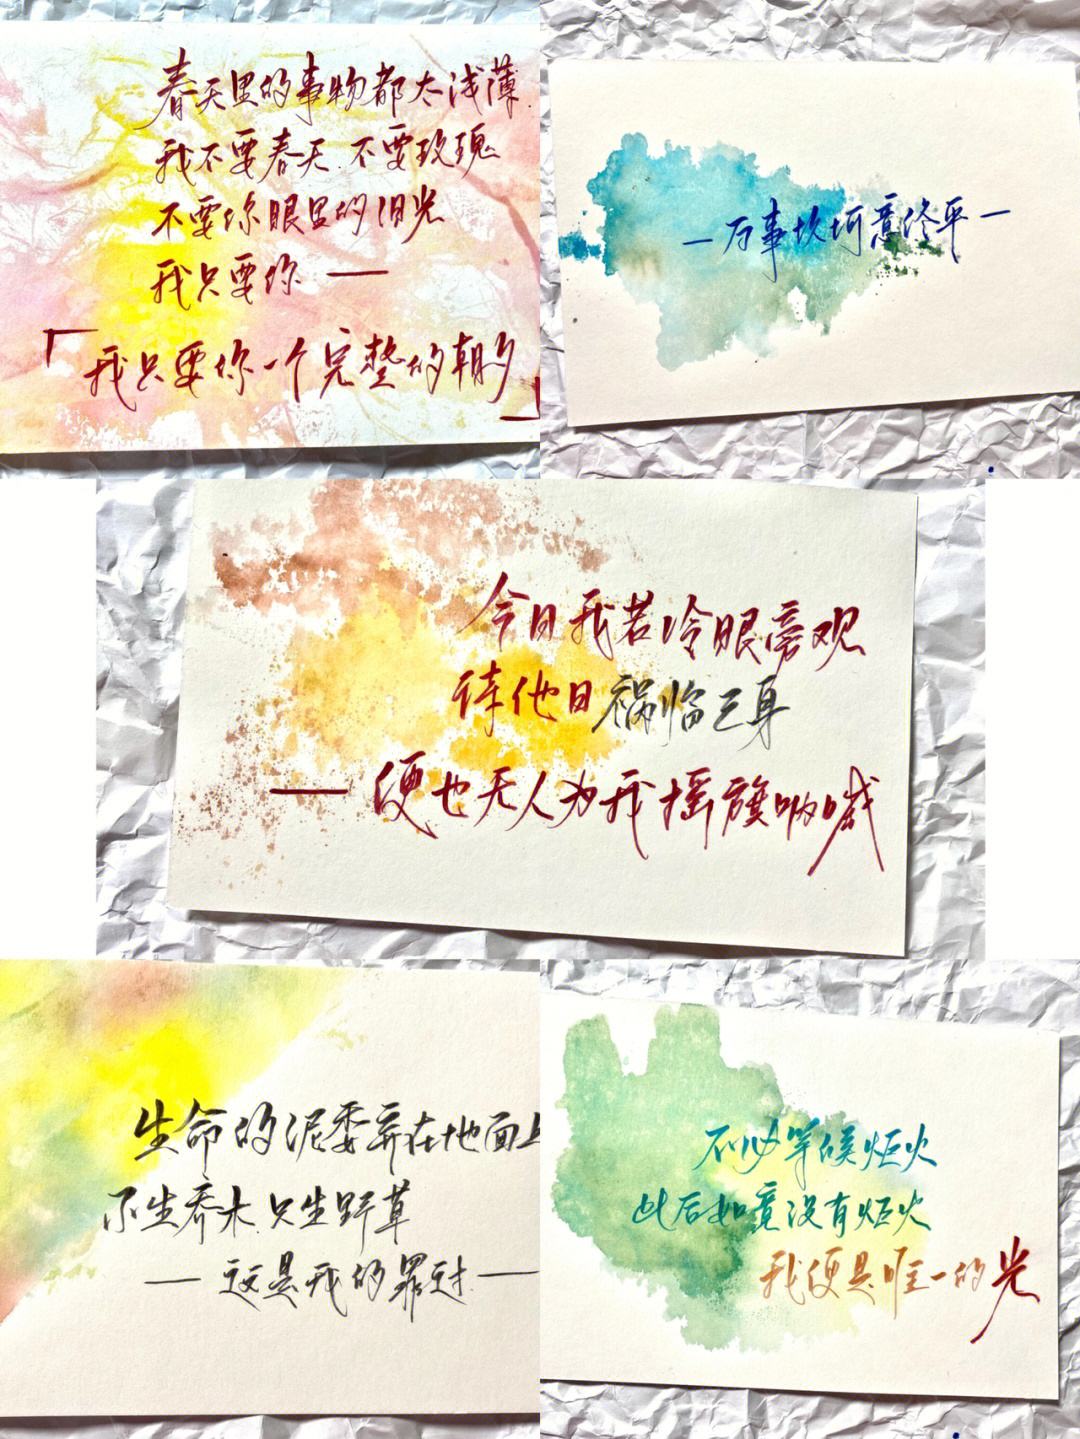 春天里的事物都太浅薄.
我不要春天.不要玫瑰
不要你眼里的旧光
我只要你 ——
「我只要你一个完整的朝夕」
—万事坎坷意终平—
今日我若冷眼旁观
待他日祸临己身
—— 便也无人为我摇旗呐喊
生命的泥委弃在地面上
不生乔木.只生野草
—— 这是我的罪过.——
不必等候炬火
此后如竟没有炬火
我便是唯一的光